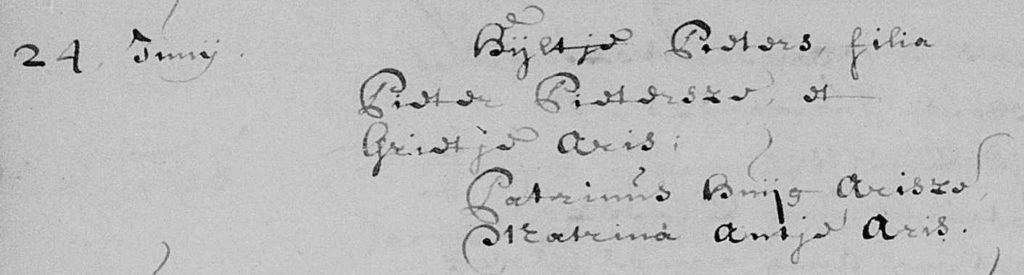 24 Junij. Hijltje Pieters, filia
Pieter Pietersze, et
Grietje Aris;
Patrinus Huijg Arisze,
Matrina Antje Aris.